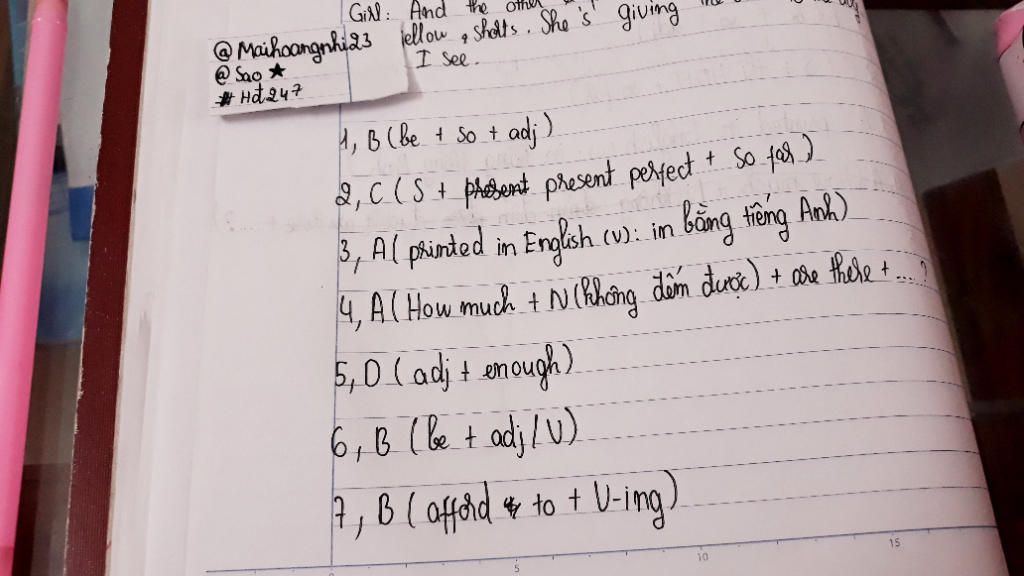 Girl: And the other
@ Maihoangnhi23
jellow, shorts. She's giving
@ Sao ★
I see.
# Hđ247
1, B (be + so + adj)
2, C (S + present present perfect + so far)
3, A ( printed in English (v): in bằng tiếng Anh)
4, A ( How much + N (không đếm được) + are there + ....?
5, D ( adj + enough)
6, B (be + adj / V)
7, B ( afford to + V-ing)
5
10
15